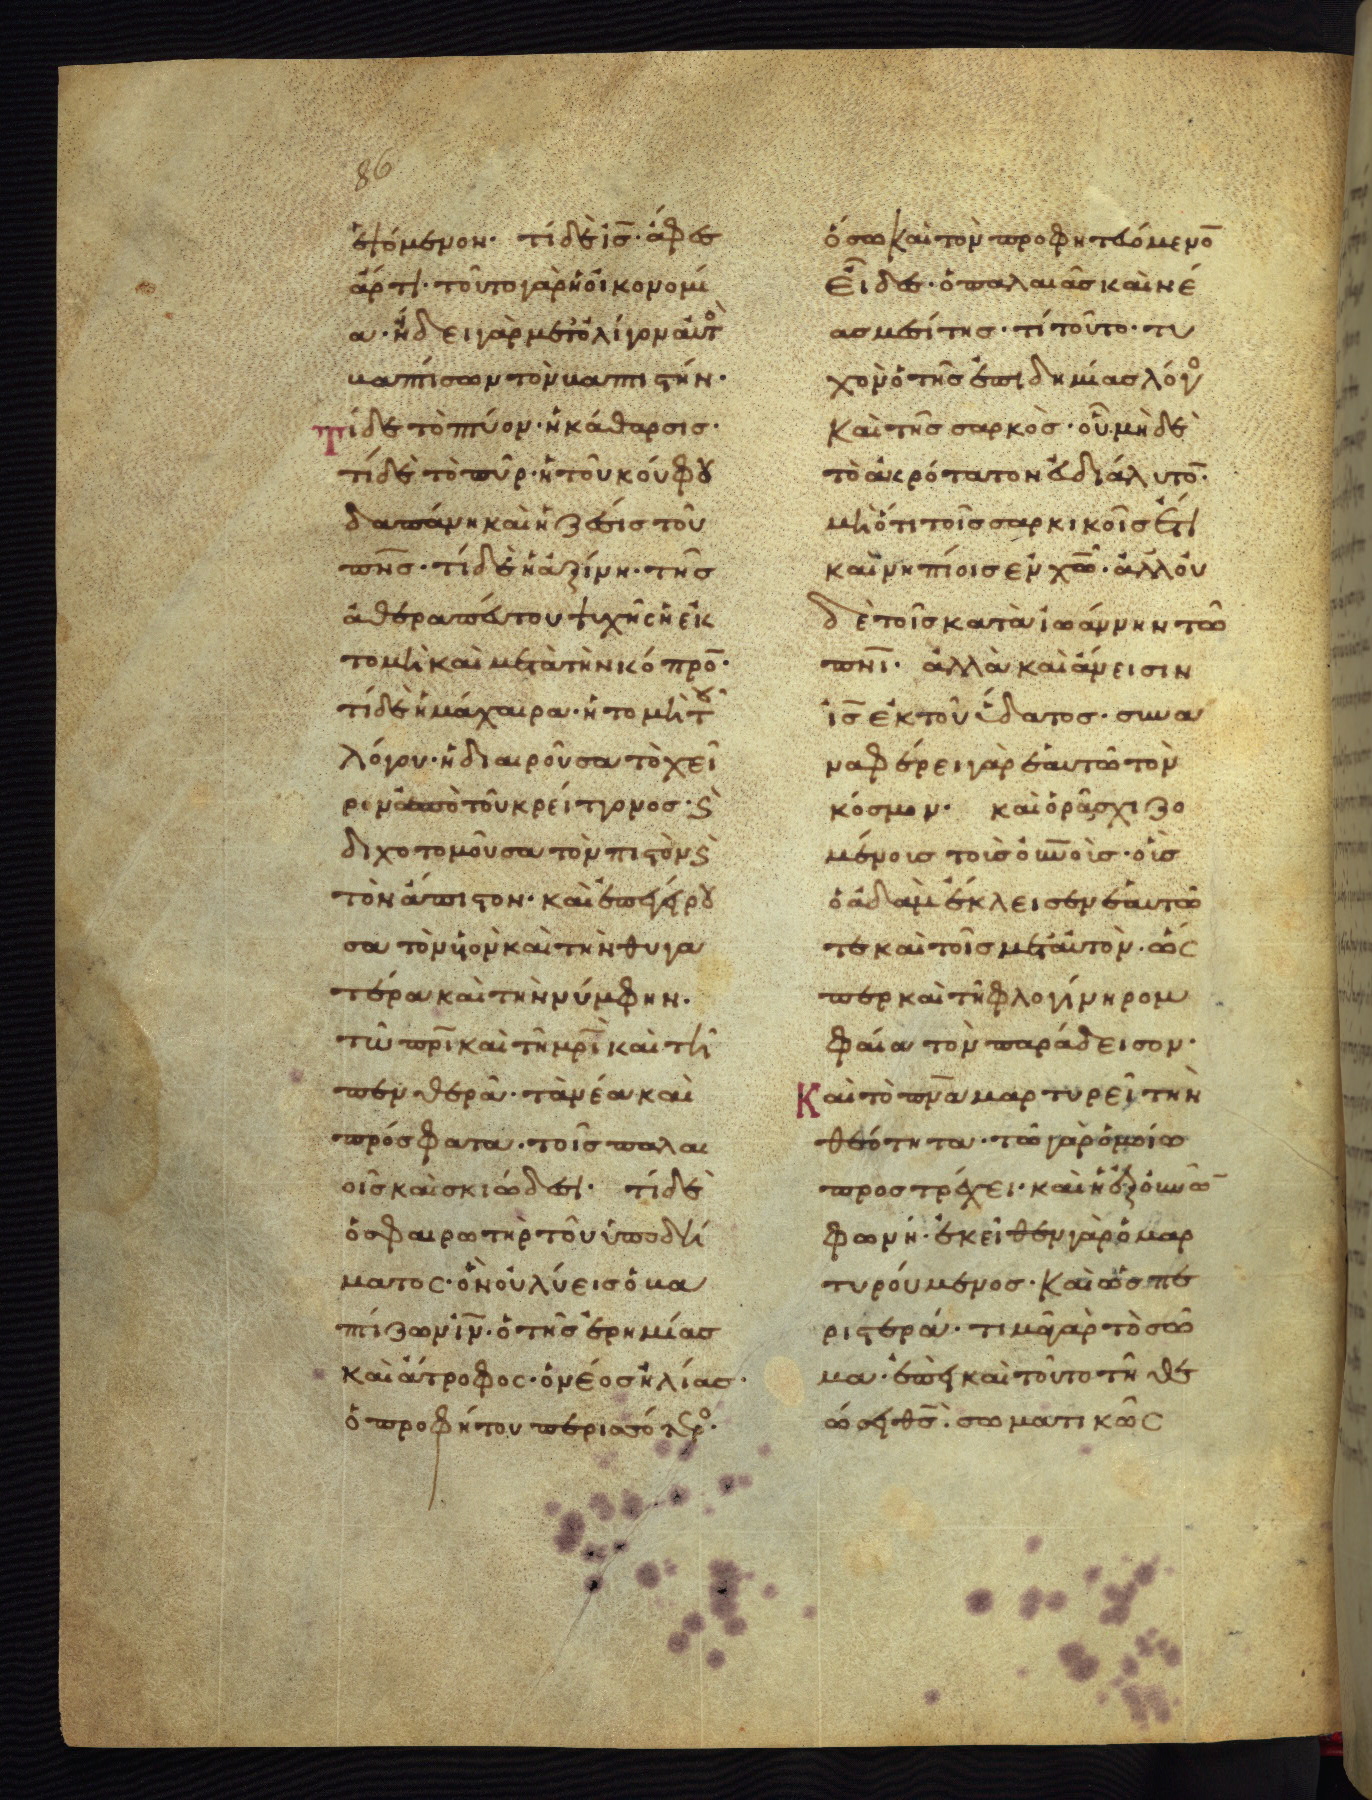 86
εψόμενον· τί δὲ ι̅σ̅· ἄφες
ἄρτι· τοῦτο γὰρ ἡ οἰκονομί
α· ᾔδει γὰρ μετολίγον αὐτὸ
βαπτίσων τὸν βαπτιστήν·
Τί δὲ τὸ πτύον· ἡ κάθαρσις·
τί δὲ τὸ πῦρ· ἡ τοῦ κούφου
δαπάνη καὶ ἡ ζέσις τοῦ
π̅ν̅σ̅· τί δὲ ἡ ἀξίνη· τῆς
ἀθεραπεύτου ψυχῆς ἡ ἐκ
τομὴ καὶ μετὰ τὴν κόπρο̅·
τί δὲ ἡ μάχαιρα· ἡ τομὴ τοῦ
λόγου· ἡ διαιροῦσα τὸ χεῖ
ρον ἀπὸ τοῦ κρείττονος· ϗ
διχοτομοῦσα τὸν πιστὸν ϗ
τὸν ἄπιστον· καὶ ἐπεγείρου
σα τὸν υἱὸν καὶ τὴν θυγα
τέρα καὶ τὴν νύμφην·
τῶ π̅ρ̅ι̅ καὶ τῆ μ̅ρ̅ι̅ καὶ τῆ
πενθερᾶ· τὰ νέα καὶ
πρόσφατα· τοῖς παλαι
οῖς καὶ σκιώδεσι· τί δὲ
ὁ σφαιρωτὴρ τοῦ ὑποδή
ματος· ὃν οὐ λύεις ὁ βα
πτίζων ι̅ν̅· ὁ τῆς ἐρημίας
καὶ ἄτροφος· ὁ νέος ἠλίας·
ὁ προφήτου περισσότερος·
ὅσω καὶ τὸν προφητευόμενο̅
εἶδε· ὁ παλαιᾶς καὶ νέ
ας μεσίτης· τί τοῦτο· τυ
χὸν ὁ τῆς ἐπιδημίας λόγος
καὶ τῆς σαρκὸς· οὗ μὴ δὲ
τὸ ἀκρότατον εὐδιάλυτο̅·
μὴ ὅτι τοῖς σαρκικοῖς ἔτι
καὶ νηπίοις ἐν χ̅ω̅· ἀλλ οὐ
δὲ τοῖς κατὰ ἰωάννην τῶ
π̅ν̅ι̅· ἀλλὰ καὶ ἄνεισιν
ι̅σ̅ ἐκ τοῦ ὕδατος· συνα
ναφέρει γὰρ ἑαυτῶ τὸν
κόσμον· καὶ ὁρᾶ σχιζο
μένοις τοῖς ο̅υ̅ν̅οῖς· οἷς
ὁ ἀδὰμ ἔκλεισεν ἑαυτῶ
τε καὶ τοῖς μετ αὐτὸν· ὥς
περ καὶ τῆ φλογίνη ρομ
φαία τὸν παράδεισον·
Καὶ τὸ π̅ν̅α̅ μαρτυρεῖ τὴν
θεότητα· τῶ γὰρ ὁμοίω
προστρέχει· καὶ ἡ ἐξ ο̅υ̅ν̅ῶ̅
φωνή· ἐκεῖθεν γὰρ ὁ μαρ
τυρούμενος· Καὶ ὡς πε
ριστερά· τιμᾶ γὰρ τὸ σῶ
μα· ἐπεὶ καὶ τοῦτο τῆ θε
ώσει θ̅σ̅· σωματικῶς